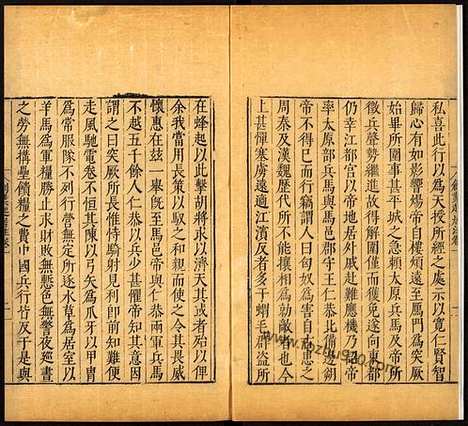 私喜此行以為天授所經之處示以寬仁賢智
歸心有如影響煬帝自樓煩遠至鴈門為突厥
始畢所圍事甚平城之急賴太原兵馬及帝所
徵兵聲勢繼進故得解圍僅而獲免遂向東都
仍幸江都宮以帝地居外戚赴難應機乃詔帝
率太原部兵馬與馬邑郡守王仁恭北備邊朔
帝不得已而行竊謂人曰匈奴為害自古患之
周秦及漢魏歷代所不能攘相為勍敵者也今
上甚憚塞虜遠適江濱反者多于蝟毛羣盜所
在蜂起以此擊胡將求以濟天其或者殆以俾
余我當用長策以馭之和親而使之令其畏威
懷惠在兹一舉旣至馬邑帝與仁恭兩軍兵馬
不越五千餘人仁恭以兵少甚懼帝知其意因
謂之曰突厥所長惟恃騎射見利即前知難便
走風馳電卷不恒其陳以弓矢為爪牙以甲冑
為常服隊不列行營無定所逐水草為居室以
羊馬為軍糧勝止求財敗無慙色無警夜巡晝
之勞無構壘饋糧之費中國兵行皆反于是與
tozhuge.com